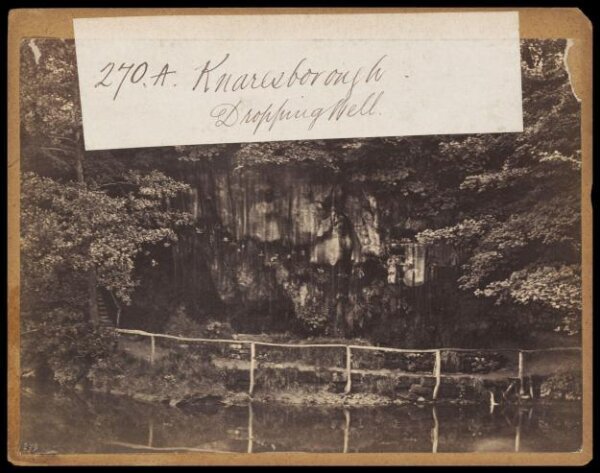 270. A. Knaresborough.
Dropping Well.